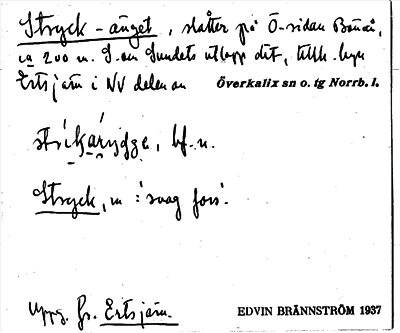 Stryck-änget, slåtter på Ö-sidan Bönå,
ca 200 m. S. om Sundets utlopp det, tillh. byn
Ertsjärv i NV delen av Överkalix sn o. tg Norrb. l.
bf. n.
Stryck, m: 'svag fors'.
Uppg. fr. Ertsjärv.
EDVIN BRÄNNSTRÖM 1937